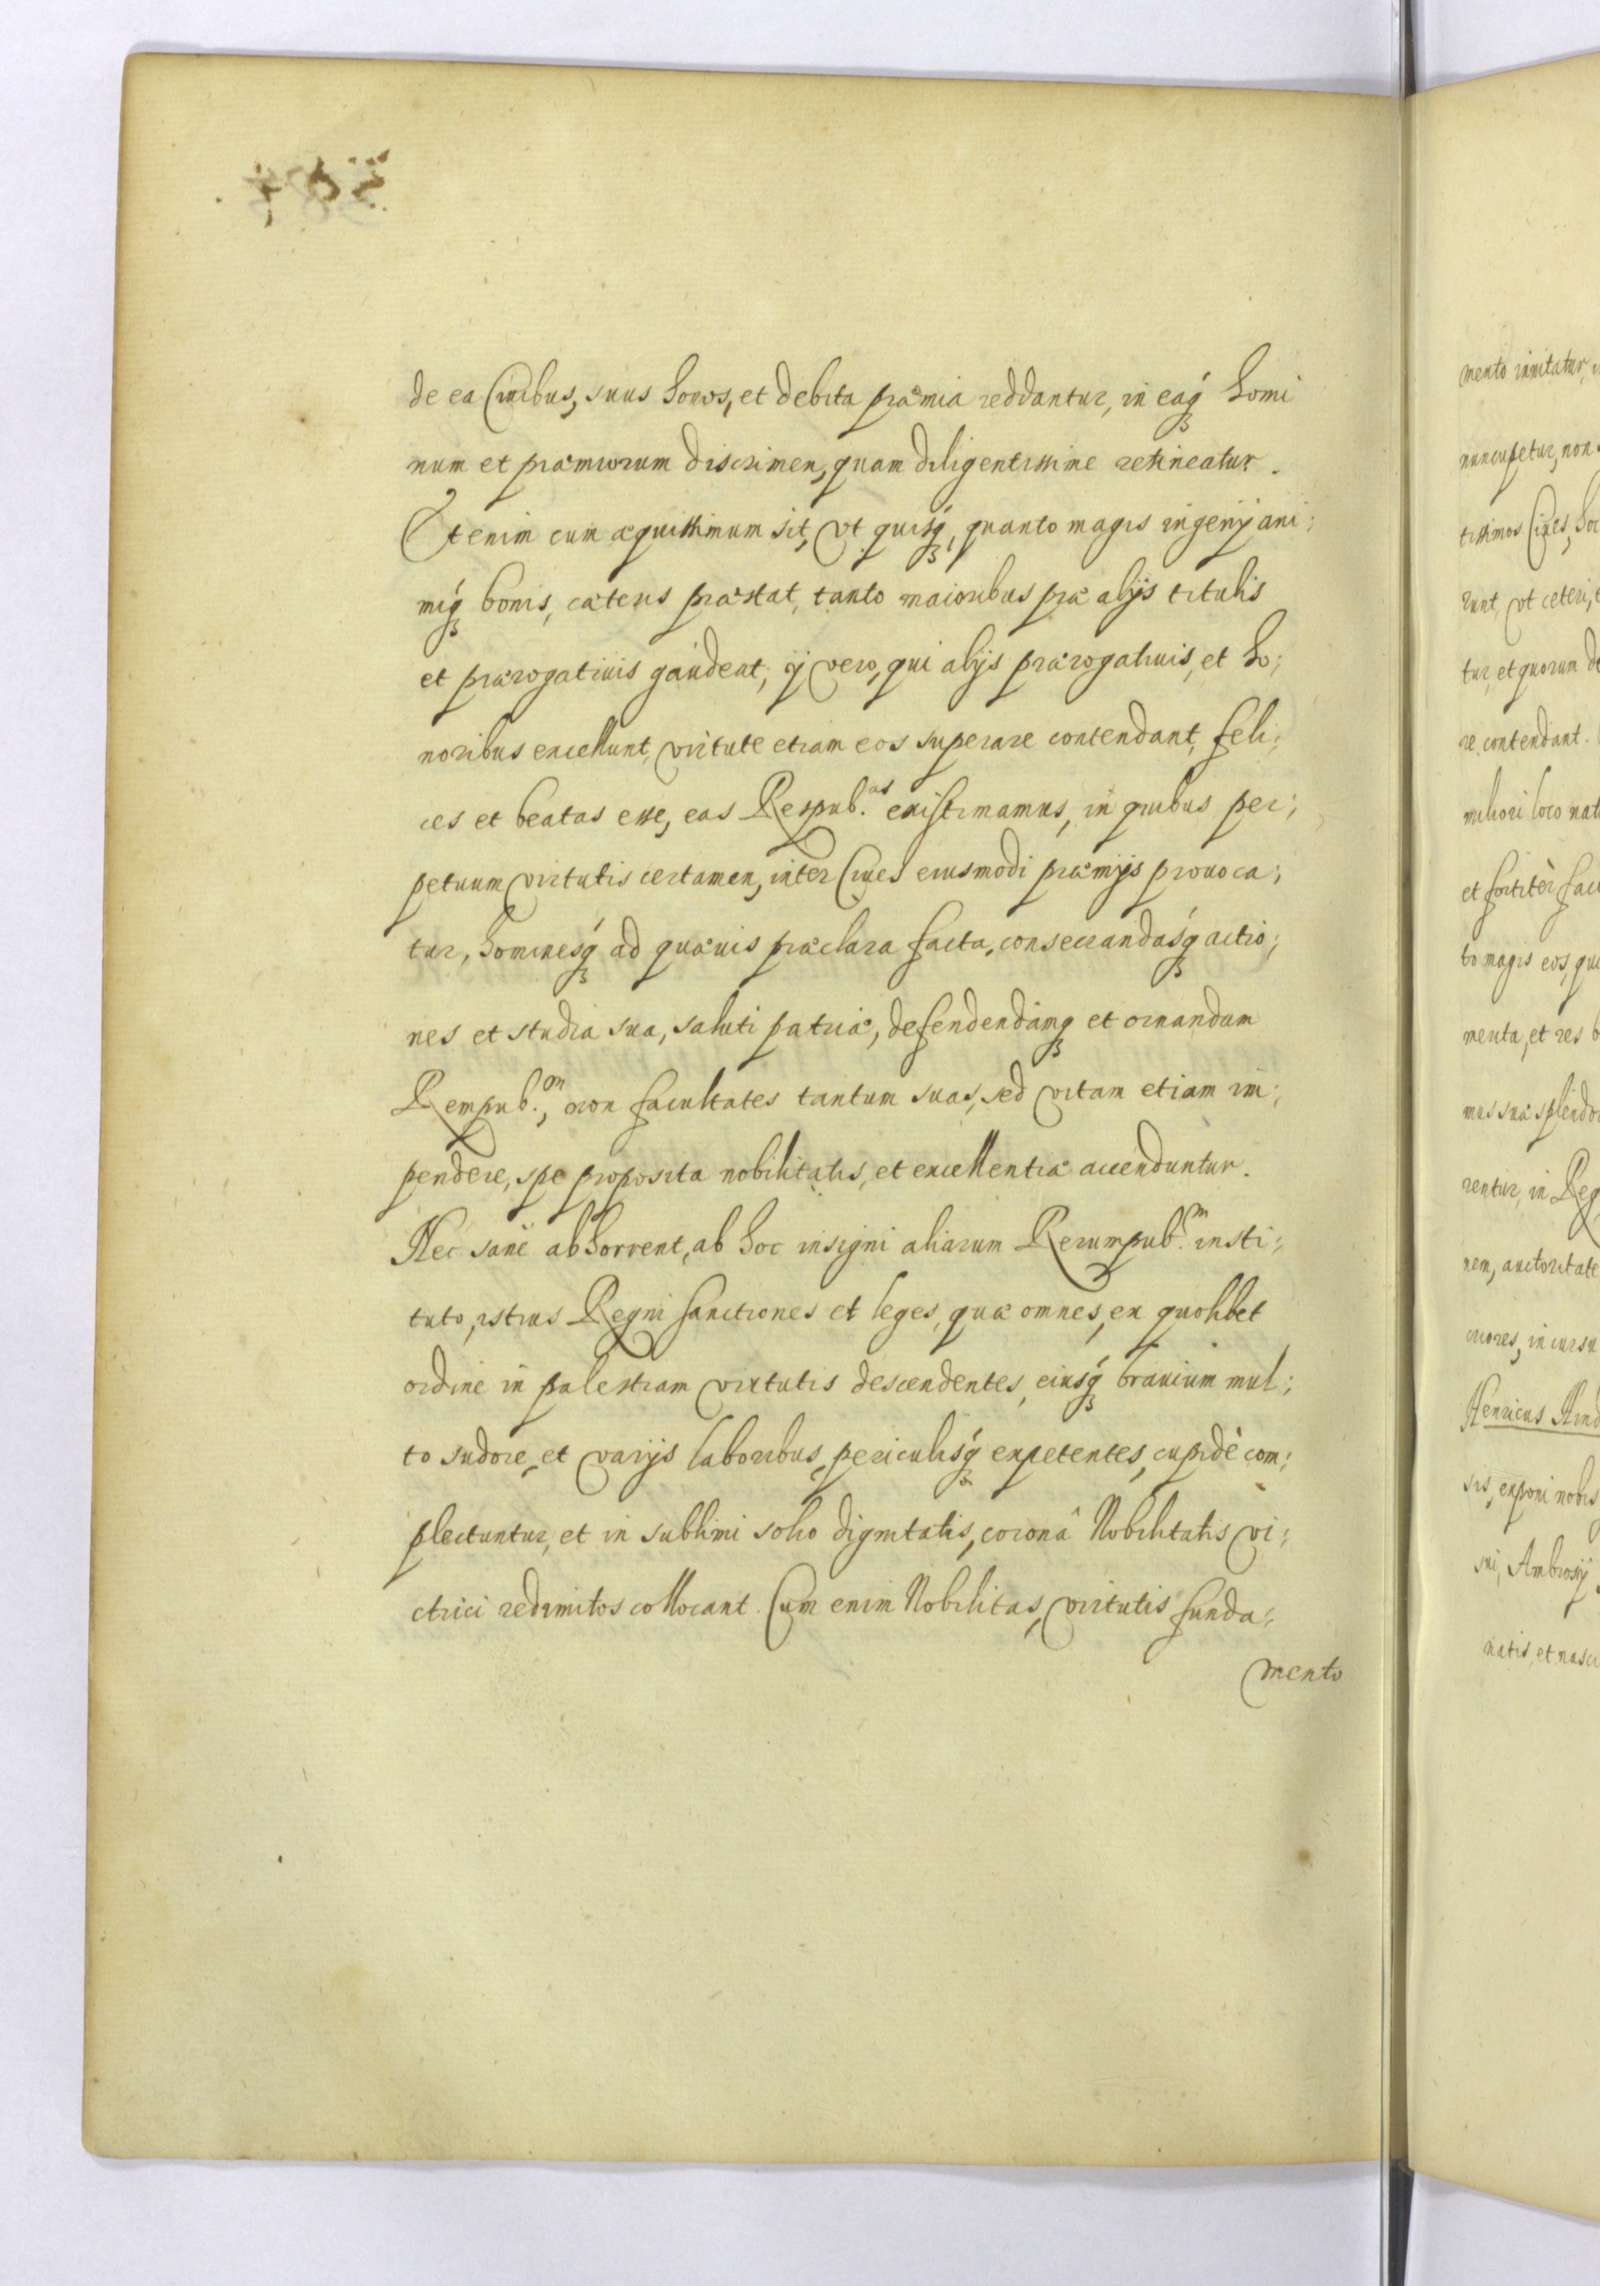 de ea Ciuibus, suus honos, et debita præmia reddantur, in eaq́ʒ homi
num et præmiorum discrimen, quam diligentissime retineatur.
Etenim cum æquissimum sit, vt quisq́ʒ, quanto magis ingenij ani;
miq́ʒ bonis, cæteris præstat, tanto maioribus præ alijs titulis
et prærogatiuis gaudeat, ij vero, qui alijs prærogatiuis, et ho;
noribus excellunt, virtute etiam eos superare contendant, feli;
ces et beatas esse, eas Respub.as existimamus, in quibus per;
petuum virtutis certamen, inter Ciues eiusmodi præmijs prouoca;
tur, hominesq́ʒ ad quæuis præclara facta, consecrandasq́ʒ actio;
nes et studia sua, saluti patriæ, defendendamq́ʒ et ornandam
Rempub.m, non facultates tantum suas, sed vitam etiam im;
pendere, spe proposita nobilitatis, et excellentiæ accenduntur.
Nec sanè abhorrent, ab hoc insigni aliarum Rerumpub.m insti;
tuto, istius Regni sanctiones et leges, quæ omnes, ex quolibet
ordine in palestram virtutis descendentes, eiusq́ʒ brauium mul;
to sudore, et varijs laboribus, periculisq́ʒ expetentes, cupidè com;
plectuntur, et in sublimi solio dignitatis, coronâ Nobilitatis vi;
ctrici redimitos collocant. Cum enim Nobilitas, virtutis funda;
mento
mento innitatur,
nuncupetur, non
tissimos Ciues, hoc
runt, vt ceteri,
tur, et quorum de
re contendant.
meliori loco nat
et fortitèr fac
to magis eos, qui
menta, et res
mus suæ splendo
rentur, in Reg
nem, auctoritate
in cursu
Henricus
exponi nobis
sui, Ambrosij
natis, et nasci